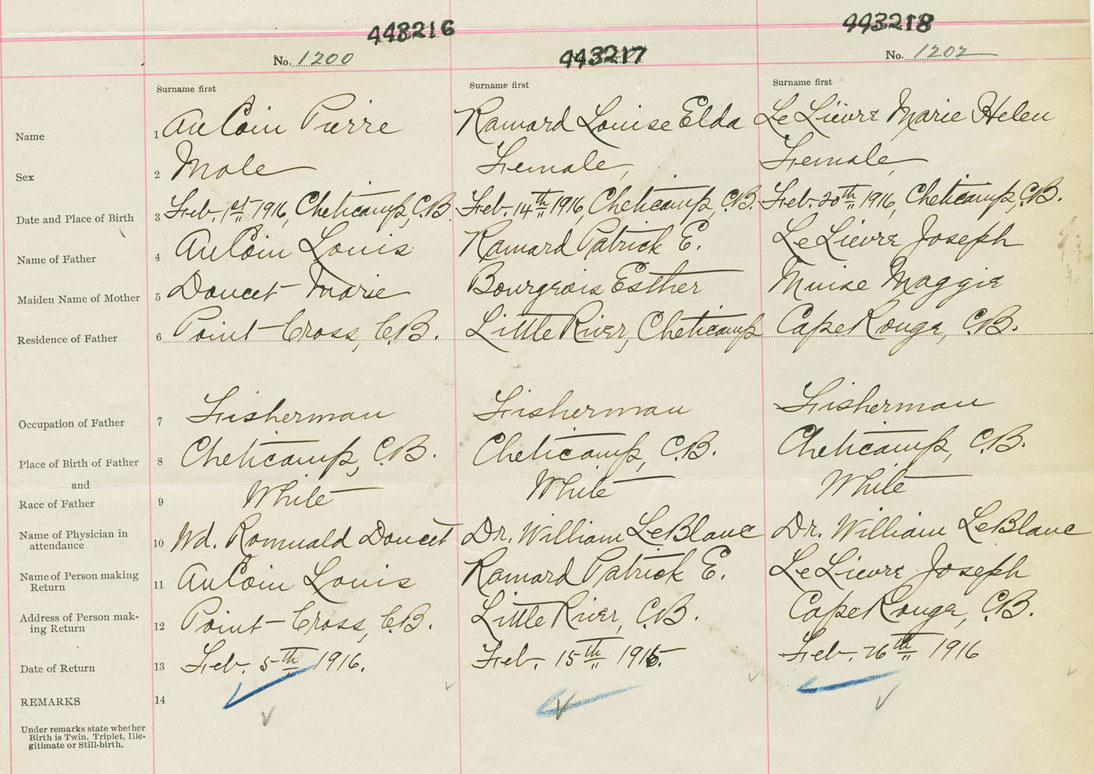 443216 443217 443218
No. 1200 No. 1202
Surname first Surname first Surname first
Name 1 AuCoin Pierre Ramard Louise Elda Le Lièvre Marie Helen
Sex 2 Male Female, Female,
Date and Place of Birth 3 Feb. 1st 1916, Cheticamp, C.B. Feb. 14th 1916, Cheticamp C.B. Feb. 20th 1916, Cheticamp, C.B.
Name of Father 4 AuCoin Louis Ramard Patrick E. Le Lievre Joseph
Maiden Name of Mother 5 Doucet Marie Bourgeois Esther Muise Maggie
Residence of Father 6 Point Cross, C.B. Little River, Cheticamp Cape Rouge, C.B.
Occupation of Father 7 Fisherman Fisherman Fisherman
Place of Birth of Father 8 Cheticamp, C.B. Cheticamp, C.B. Cheticamp, C.B.
and
Race of Father 9 White White White
Name of Physician in
attendance 10 Wd. Romuald Doucet Dr. William LeBlanc Dr. William LeBlanc
Name of Person making
Return 11 AuCoin Louis Ramard Patrick E. Le Lievre Joseph
Address of Person mak-
ing Return 12 Point Cross, C.B. Little River, C.B. Cape Rouge, C.B.
Date of Return 13 Feb. 5th 1916. Feb. 15th 1916. Feb. 26th 1916
REMARKS 14
Under remarks state whether
Birth is Twin, Triplet, Ille-
gitimate or Still-birth.